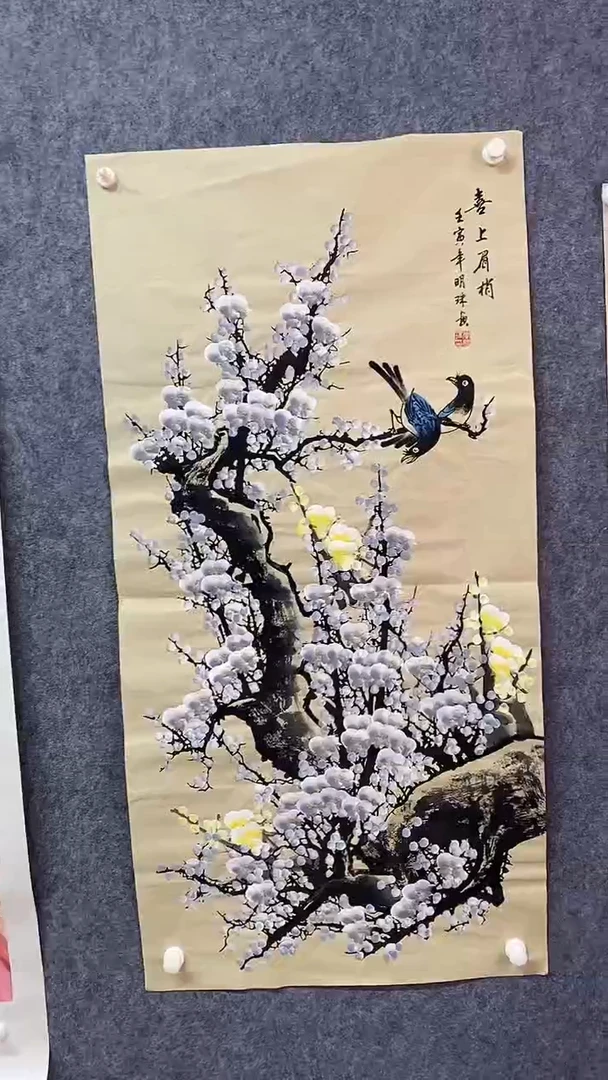 喜上眉梢
壬寅年明珠画